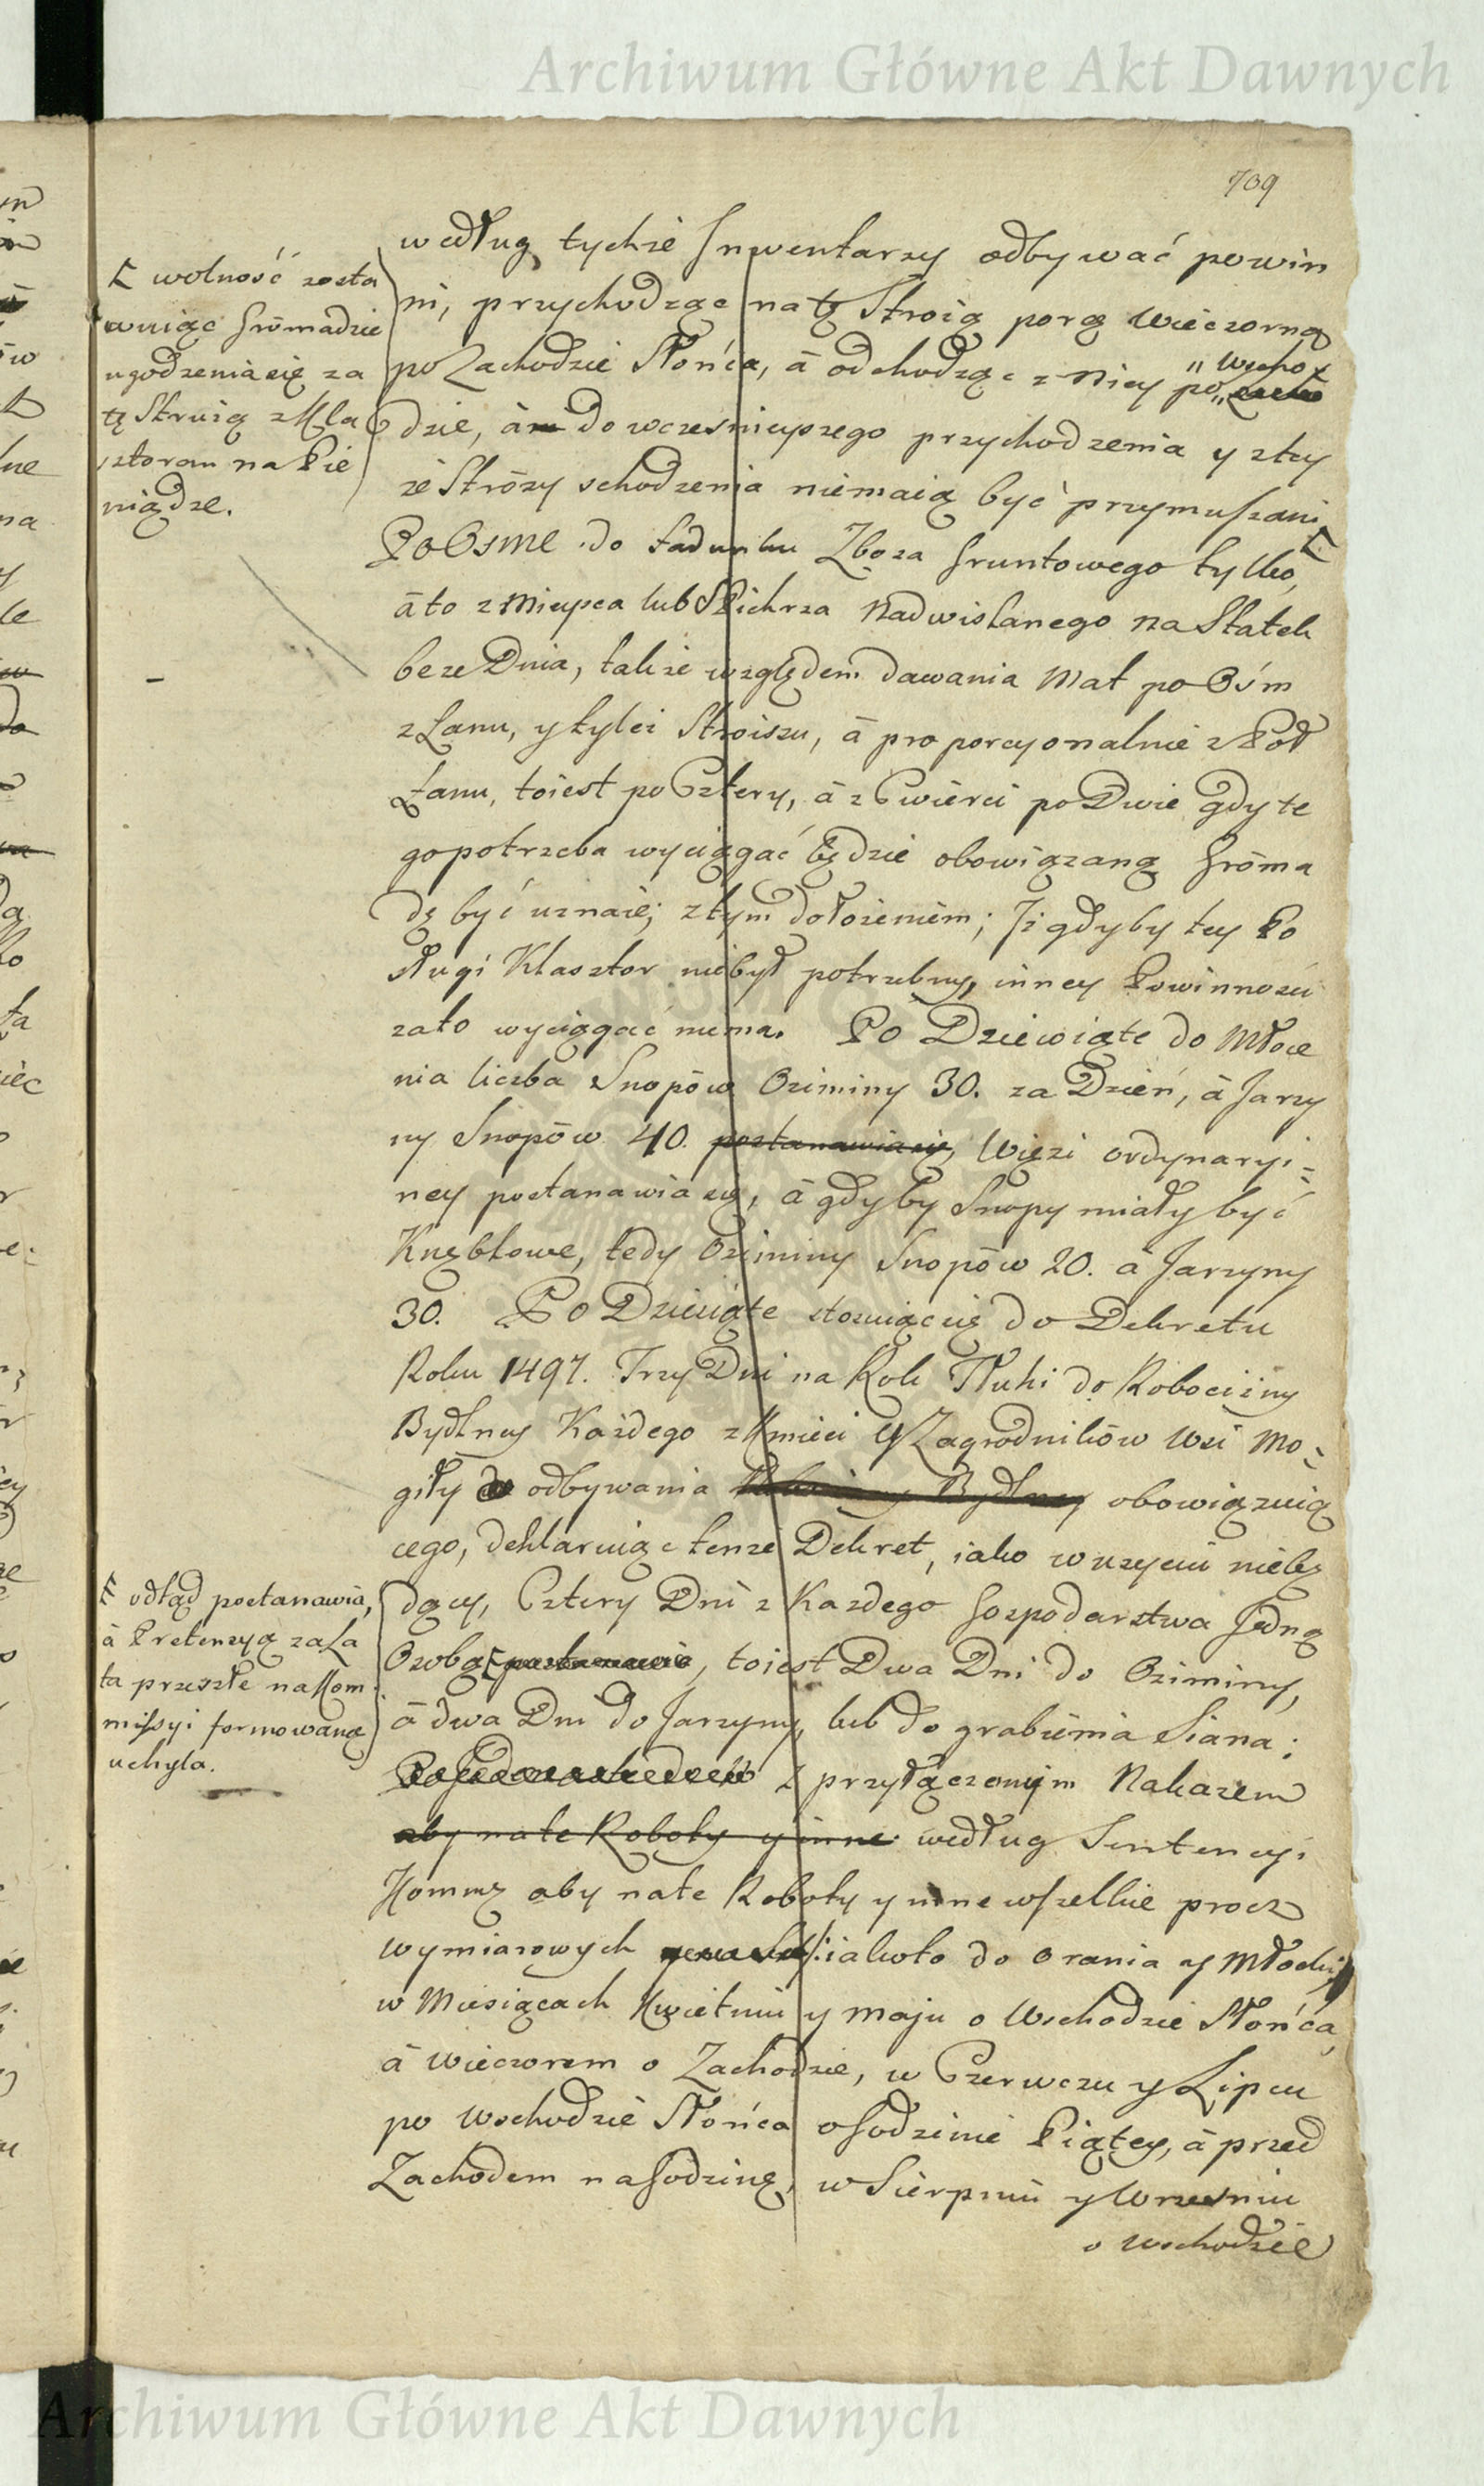 Archiwum Główne Akt Dawnych
709
według tychże Inwentarzy odbywać powin
ni, przychodząc na tę Strożą porą wieczorną
po Zachodzie Słońca, à odchodząc z niey po wscho
dzie, à do wczesnieyszego przychodzenia y z tey
że Stróży schodzenia niemaią być przymuszani
Po Osme do Ładunku Zboża Gruntowego tylko,
à to z Mieysca lub Spichrza Nadwislanego na Statek
beze Dnia, także względem dawania Mat po Ośm
z Łanu, y tyleż Stroiszu, à proporcyonalnie z Poł
Łanu, toiest po Cztery, à z Cwierci po Dwie gdy te
go potrzeba wyciągać będzie obowiązaną Gróma
dę być uznaie; z tym dołożeniem; Iż gdyby tey Po
sługi Klasztor niebył potrzebny, inney Powinności
zato wyciągać niema. Po Dziewiąte do Młoce
nia liczba Snopów Oziminy 30. za Dzień, à Jarzy
ny Snopów 40. postanawia się, Więzi ordynaryi=
ney postanawia się, à gdyby Snopy miały być
Knęblowe, tedy Oziminy Snopów 20. à Jarzyny
30. Po Dziesiąte stosuiąc się do Dekretu
Roku 1497. Trzy Dni na Rok Tłuki do Robocizny
Bydlney Każdego z Kmieci y Zagrodników Wsi Mo=
giły do odbywania obowiązuią
cego, deklaruiąc tenże Dekret, iako w uzyciu niebę
dący, Cztery Dni z Każdego Gospodarstwa Jedną
Osobą postanawia, toiest Dwa Dni do Oziminy,
à dwa Dni do Jarzyny, lub do grabienia Siana;
z przyłączonym Nakazem
aby na te Roboty y inne według Sentencyi
Kommę aby na te Roboty y inne wszelkie procz
wymiarowych iakoto do orania y Młocki
w Miesiącach Kwietniu y Maju o Wschodzie Słońca,
à wieczorem o Zachodzie, w Czerwcu y Lipcu
po Wschodzie Słońca o Godzinie Piątey, à przed
Zachodem na Godzinę, w Sierpniu y Wrzesniu
o Wschodzie
wolność zosta
wuiąc Grómadzie
ugodzenia się za
tę Strużą z Kla
sztorem na Pie
niądze.
odtąd postanawia,
à Pretensyą za La
ta przeszłe na Kom
missyi formowaną
uchyla.
Archiwum Główne Akt Dawnych